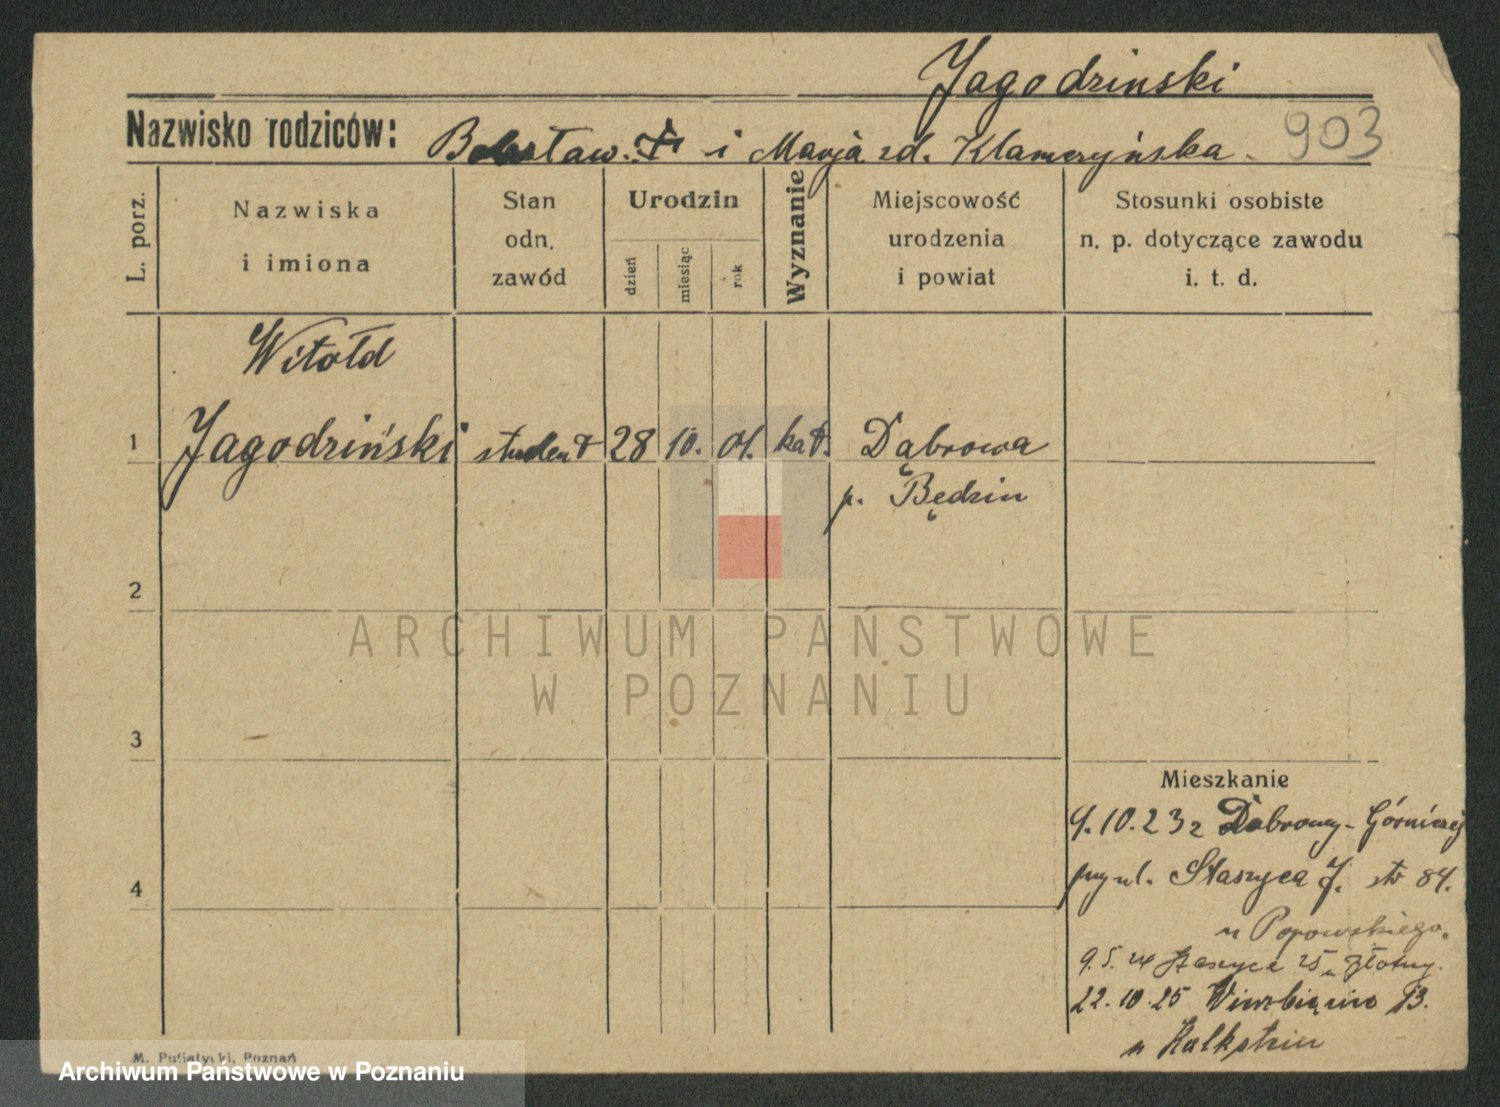 Jagodzinski
903
Nazwisko rodziców: Bolesław. † i Marja zd. Klamczyńska
L. porz.
Nazwiska
i imiona
Stan
odn.
zawód
Urodzin
dzień
miesiąc
rok
Wyznanie
Miejscowość
urodzenia
i powiat
Stosunki osobiste
n. p. dotyczące zawodu
i. t. d.
Witołd
1 Jagodziński student 28 10. 01. kat. Dąbrowa
p. Będzin
2
ARCHIWUM PAŃSTWOWE
W POZNANIU
3
Mieszkanie
9.10.23 z Dąbrowy-Górniczej
przy ul. Staszyca J. 84.
4
u Popowskiego.
9.5.24 Staszyca 25
22.10.25 13.
u Kalkstein
M. Putiatycki, Poznań
Archiwum Państwowe w Poznaniu